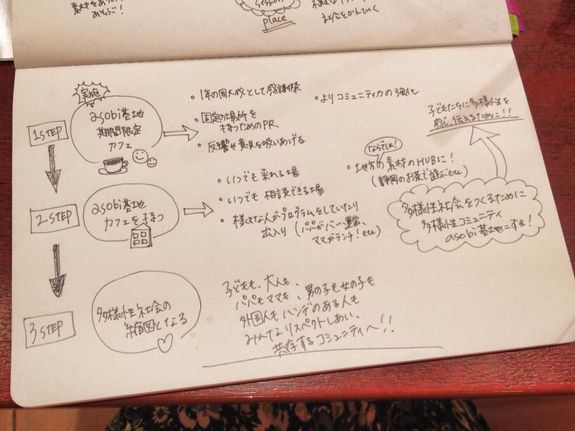 あそぶ！
session
place
実施
1 STEP
asobi基地
期間限定
カフェ
・1年の国大成として感謝祭
・固定の場所を
持つためのPR
・反響や意見を吸いあげる
・よりコミュニティ力の強化
子どもたちに多様性を
感じ、伝えるために!!
2 STEP
asobi基地
カフェを持つ
・いつでも来れる場
・いつでも相談できる場
・様々な人がプログラムをしていたり
出入り(パパがバー、
ママがランチ!etc)
ならでは!
・地方の素材のHUBに!
(静岡のお茶で遊ぶetc)
多様性社会をつくるために
多様性コミュニティ
asobi基地にする!
3 STEP
多様性社会の
縮図となる
子どもも、大人も、
パパもママも、男の子も女の子も
外国人もハンデのある人も
みんなリスペクトしあい、
共存するコミュニティへ!!